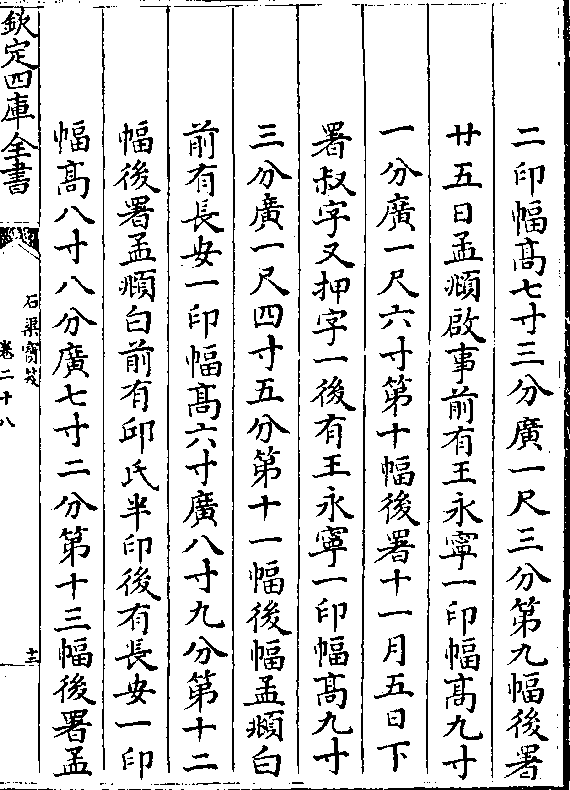 二印幅髙七寸三分廣一尺三分第九幅後署
廿五日孟頫啟事前有王永寧一印幅髙九寸
一分廣一尺六寸第十幅後署十一月五日下
署叔字又押字一後有王永寧一印幅髙九寸
三分廣一尺四寸五分第十一幅後幅孟頫白
前有長安一印幅髙六寸廣八寸九分第十二
幅後署孟頫白前有邱氏半印後有長安一印
幅髙八寸八分廣七寸二分第十三幅後署孟
欽定四庫全書
石渠寶笈
卷二十八
十三